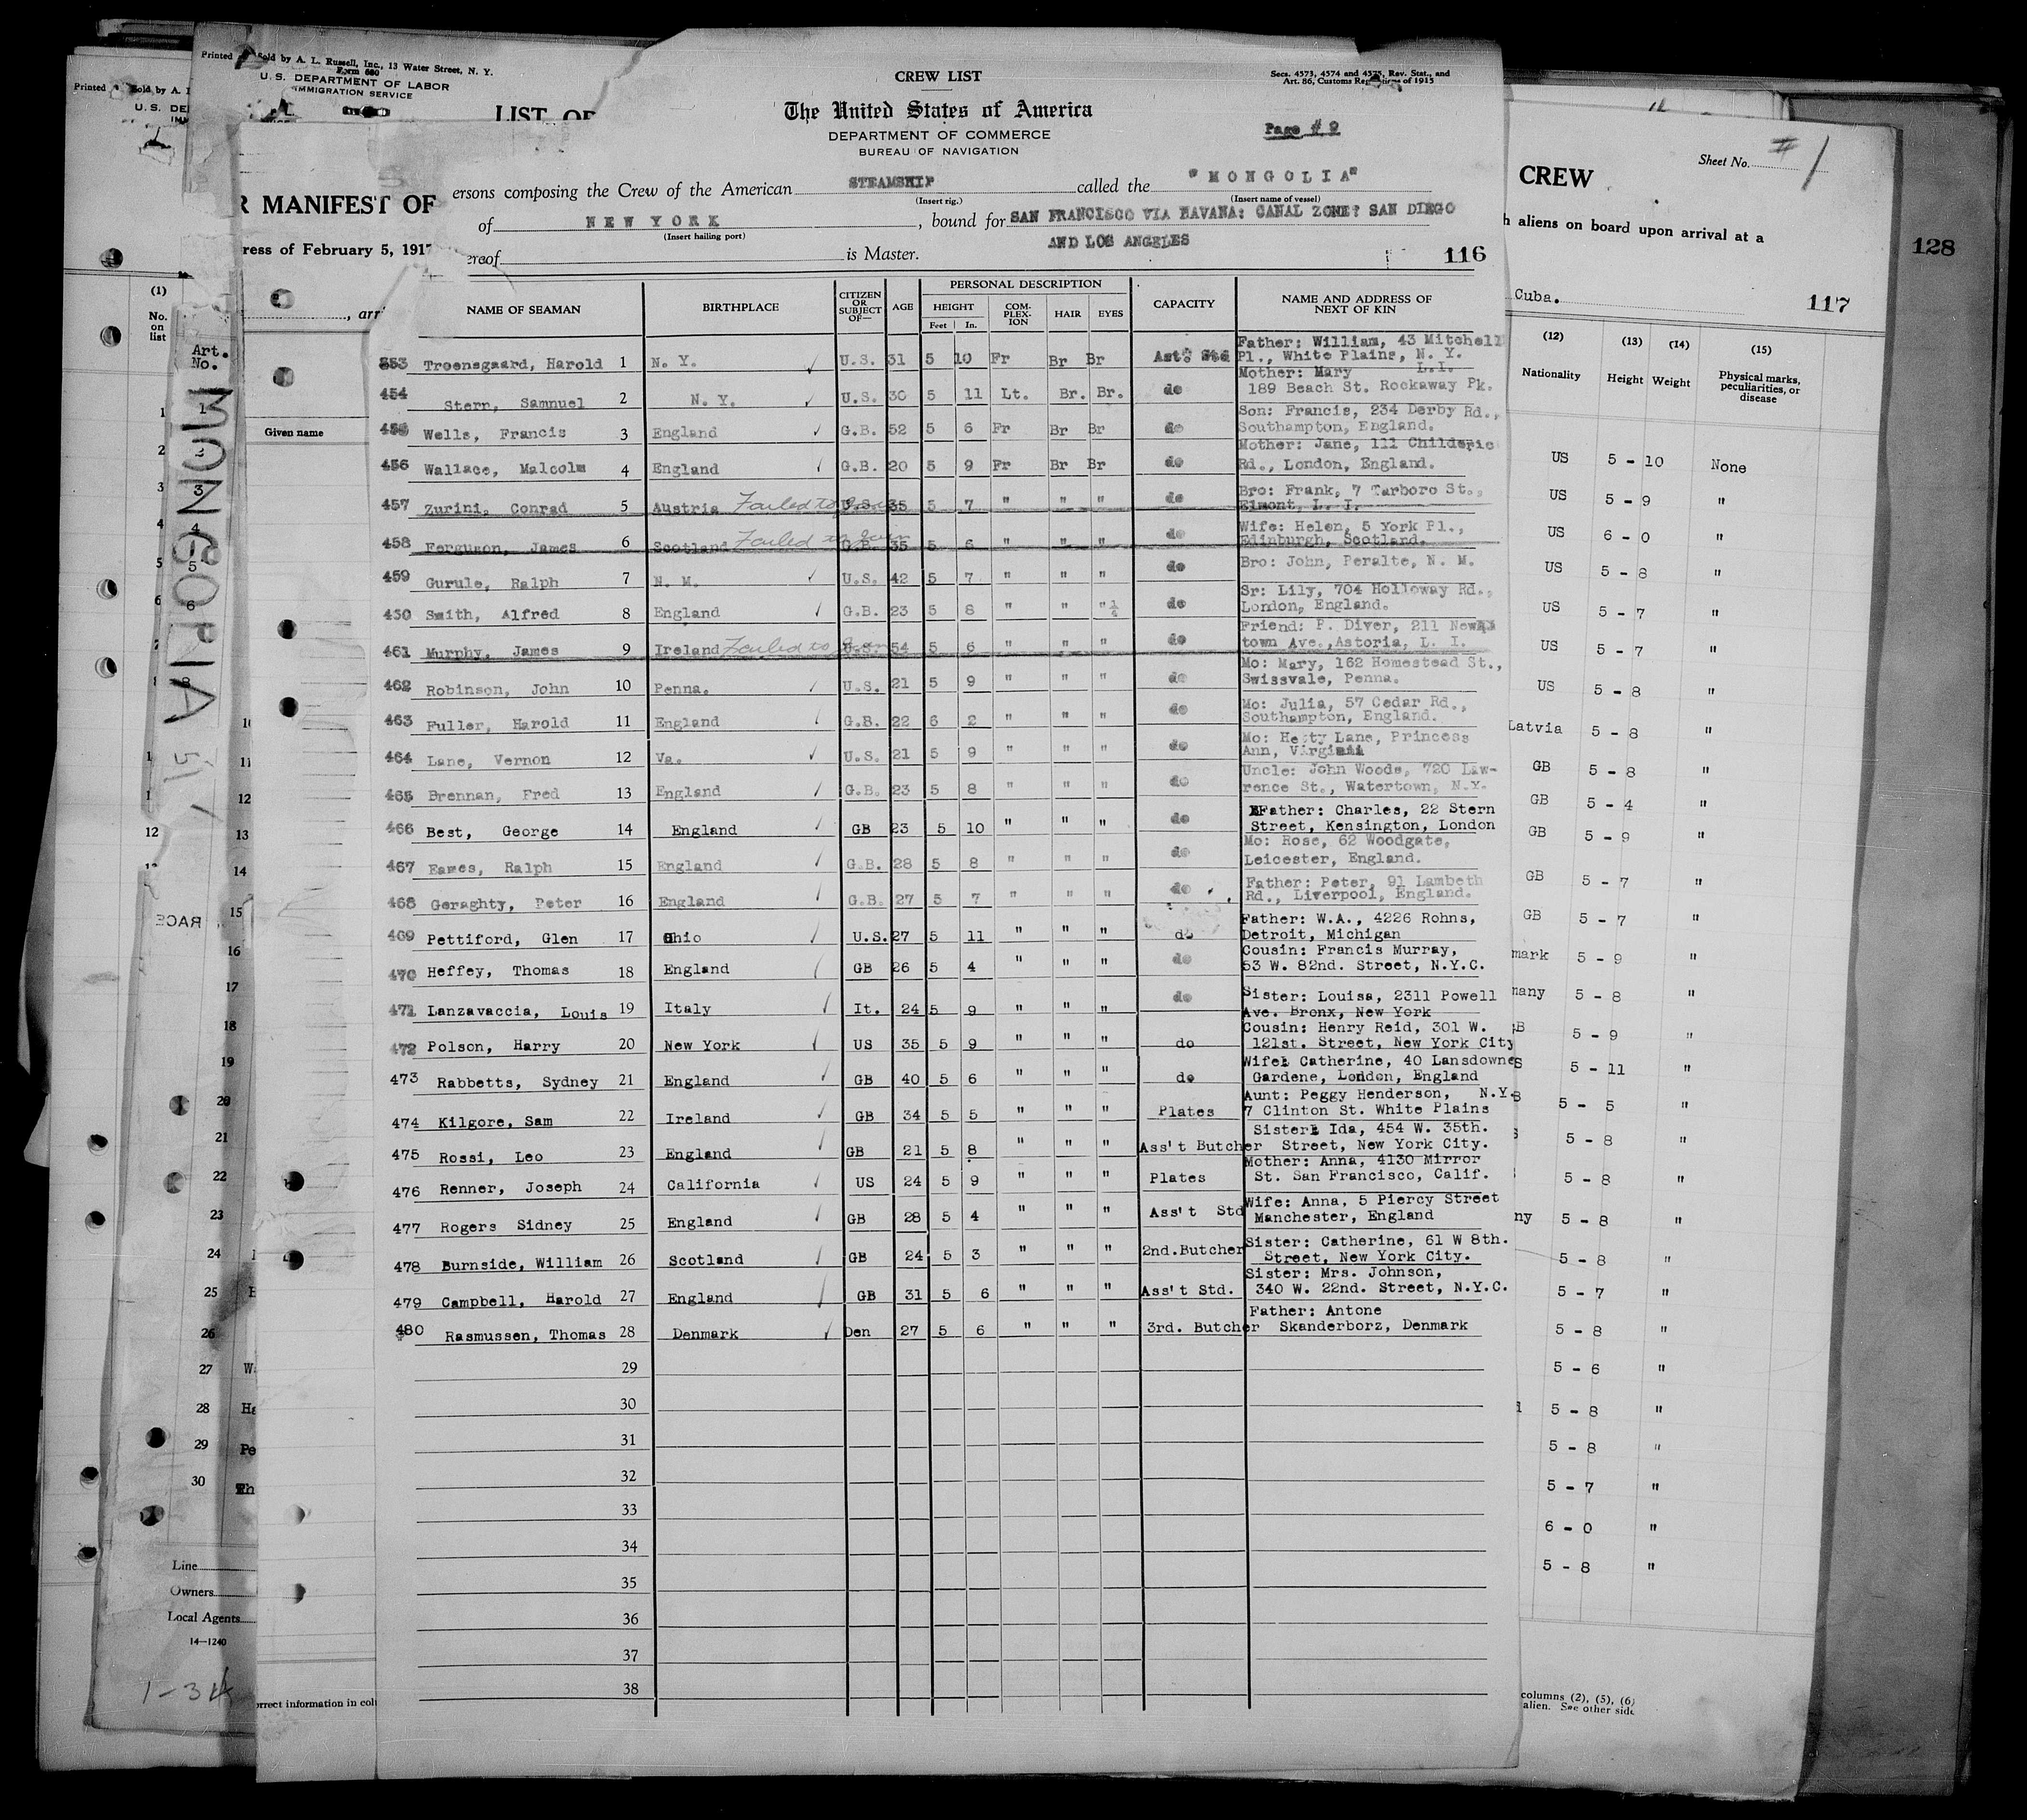 CREW LIST
Secs. 4573, 4574 and 4575, Rev. Stat., and
Art. 86, Customs Regulations of 1915
The United States of America
DEPARTMENT OF COMMERCE
BUREAU OF NAVIGATION
Page # 9
ersons composing the Crew of the American STEAMSHIP called the "MONGOLIA"
(Insert rig.) (Insert name of vessel)
of NEW YORK, bound for SAN FRANCISCO VIA HAVANA: CANAL ZONE: SAN DIEGO
(Insert hailing port)
AND LOS ANGELES
ereof is Master. 116
NAME OF SEAMAN BIRTHPLACE CITIZEN OR SUBJECT OF— AGE PERSONAL DESCRIPTION CAPACITY NAME AND ADDRESS OF NEXT OF KIN
HEIGHT COMPLEXION HAIR EYES
Feet In.
453 Troensgaard, Harold 1 N. Y. U.S. 31 5 10 Fr Br Br Ast. Std Father: William, 43 Mitchell
Pl., White Plains, N. Y.
454 Stern, Samnuel 2 N. Y. U.S. 30 5 11 Lt. Br. Br. do Mother: Mary L.I.
189 Beach St. Rockaway Pk.
455 Wells, Francis 3 England G.B. 52 5 6 Fr Br Br do Son: Francis, 234 Derby Rd.,
Southampton, England.
456 Wallace, Malcolm 4 England G.B. 20 5 9 Fr Br Br do Mother: Jane, 111 Childeric
Rd., London, England.
457 Zurini, Conrad 5 Austria Failed to join U.S. 35 5 7 " " " do Bro: Frank, 7 Tarboro St.,
Elmont, L. I.
458 Ferguson, James 6 Scotland Failed to join G.B. 35 5 6 " " " do Wife: Helen, 5 York Pl.,
Edinburgh, Scotland.
459 Gurule, Ralph 7 N. M. U.S. 42 5 7 " " " do Bro: John, Peralte, N. M.
430 Smith, Alfred 8 England G.B. 23 5 8 " " " 1/4 do Sr: Lily, 704 Holloway Rd.,
London, England.
461 Murphy, James 9 Ireland Failed to join U.S. 54 5 6 " " " do Friend: P. Diver, 211 New
town Ave., Astoria, L. I.
462 Robinson, John 10 Penna. U.S. 21 5 9 " " " do Mo: Mary, 162 Homestead St.,
Swissvale, Penna.
463 Fuller, Harold 11 England G.B. 22 6 2 " " " do Mo: Julia, 57 Cedar Rd.,
Southampton, England.
464 Lane, Vernon 12 Va. U.S. 21 5 9 " " " do Mo: Hetty Lane, Princess
Ann, Virginia
465 Brennan, Fred 13 England G.B. 23 5 8 " " " do Uncle: John Woods, 720 Law-
rence St., Watertown, N.Y.
466 Best, George 14 England GB 23 5 10 " " " do Father: Charles, 22 Stern
Street, Kensington, London
467 Eames, Ralph 15 England G.B. 28 5 8 " " " do Mo: Rose, 62 Woodgate,
Leicester, England.
468 Geraghty, Peter 16 England G.B. 27 5 7 " " " do Father: Peter, 91 Lambeth
Rd., Liverpool, England.
469 Pettiford, Glen 17 Ohio U.S. 27 5 11 " " " do Father: W.A., 4226 Rohns,
Detroit, Michigan
470 Heffey, Thomas 18 England GB 26 5 4 " " " do Cousin: Francis Murray,
53 W. 82nd. Street, N.Y.C.
471 Lanzavaccia, Louis 19 Italy It. 24 5 9 " " " do Sister: Louisa, 2311 Powell
Ave. Bronx, New York
472 Polson, Harry 20 New York US 35 5 9 " " " do Cousin: Henry Reid, 301 W.
121st. Street, New York City
473 Rabbetts, Sydney 21 England GB 40 5 6 " " " do Wife: Catherine, 40 Lansdowne
Gardene, London, England
474 Kilgore, Sam 22 Ireland GB 34 5 5 " " " Plates Aunt: Peggy Henderson, N.Y.
7 Clinton St. White Plains
475 Rossi, Leo 23 England GB 21 5 8 " " " Ass't Butcher Sister: Ida, 454 W. 35th.
Street, New York City.
476 Renner, Joseph 24 California US 24 5 9 " " " Plates Mother: Anna, 4130 Mirror
St. San Francisco, Calif.
477 Rogers Sidney 25 England GB 28 5 4 " " " Ass't Std Wife: Anna, 5 Piercy Street
Manchester, England
478 Burnside, William 26 Scotland GB 24 5 3 " " " 2nd.Butcher Sister: Catherine, 61 W 8th.
Street, New York City.
479 Campbell, Harold 27 England GB 31 5 6 " " " Ass't Std. Sister: Mrs. Johnson,
340 W. 22nd. Street, N.Y.C.
480 Rasmussen, Thomas 28 Denmark Den 27 5 6 " " " 3rd. Butcher Father: Antone
Skanderborz, Denmark
29
30
31
32
33
34
35
36
37
38
Printed Sold by A. L. Russell, Inc., 13 Water Street, N. Y.
Form 680
U. S. DEPARTMENT OF LABOR
IMMIGRATION SERVICE
LIST OF
R MANIFEST OF
ress of February 5, 1917
, arri
Given name
Printed Sold by A.
U. S. DE
(1)
No. on list
Art. No.
MONGOLIA
RACE
Line
Owners
Local Agents
14—1240
1-34
orrect information in col
Sheet No. # 1
CREW
h aliens on board upon arrival at a
128
Cuba. 117
(12) (13) (14) (15)
Nationality Height Weight Physical marks, peculiarities, or disease
US 5 - 10 None
US 5 - 9 "
US 6 - 0 "
US 5 - 8 "
US 5 - 7 "
US 5 - 7 "
US 5 - 8 "
Latvia 5 - 8 "
GB 5 - 8 "
GB 5 - 4 "
GB 5 - 9 "
GB 5 - 7 "
GB 5 - 7 "
mark 5 - 9 "
many 5 - 8 "
5 - 9 "
5 - 11 "
5 - 5 "
5 - 8 "
5 - 8 "
ny 5 - 8 "
5 - 8 "
5 - 7 "
5 - 8 "
5 - 6 "
5 - 8 "
5 - 8 "
5 - 7 "
6 - 0 "
5 - 8 "
columns (2), (5), (6)
alien. See other side